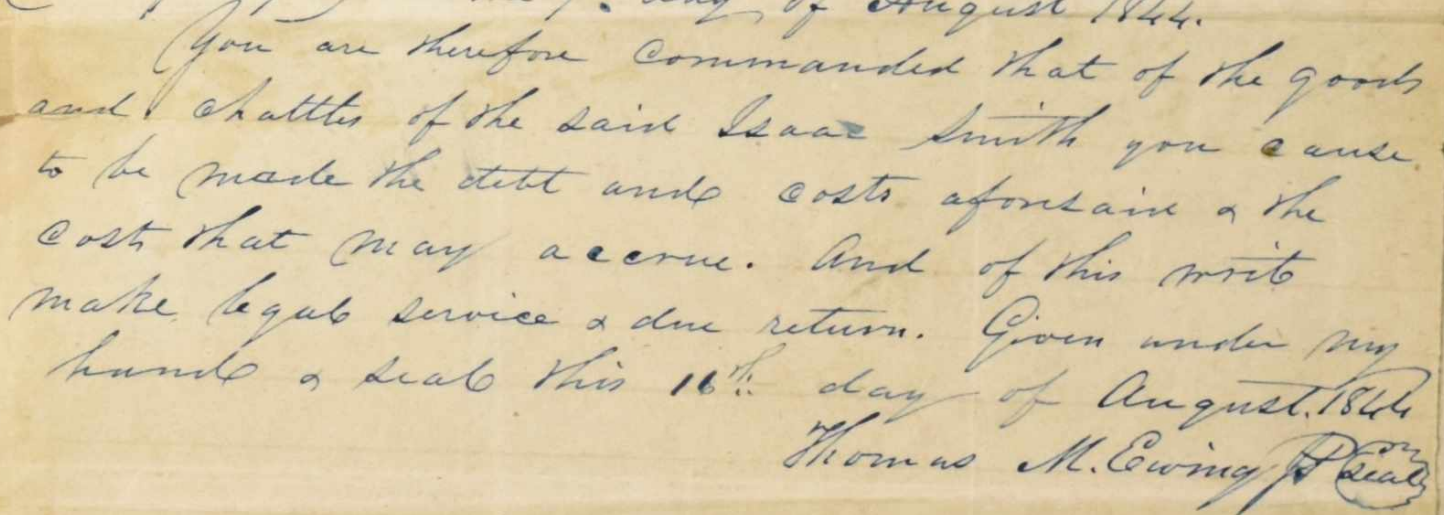 day of August 1844.
You are therefore commanded that of the goods
and chattles of the said Isaac Smith you cause
to be made the debt and costs aforesaid & the
costs that may accrue. And of this writ
make legal service & due return. Given under my
hand & seal this 16th day of August. 1844
Thomas M. Ewing JP Seal